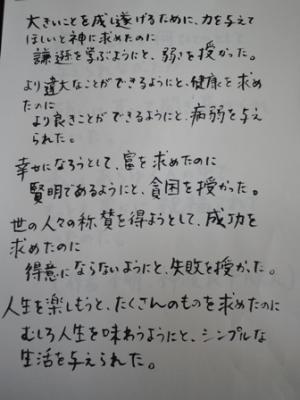 大きいことを成し遂げるために、力を与えて
ほしいと神に求めたのに
謙遜を学ぶようにと、弱さを授かった。
より違大なことができるようにと、健康を求め
たのに
より良きことができるようにと、病弱を与え
られた。
幸せになろうとして、富を求めたのに
賢明であるようにと、貧困を授かった。
世の人々の称賛を得ようとして、成功を
求めたのに
得意にならないようにと、失敗を授かった。
人生を楽しもうと、たくさんのものを求めたのに
むしろ人生を味わうようにと、シンプルな
生活を与えられた。